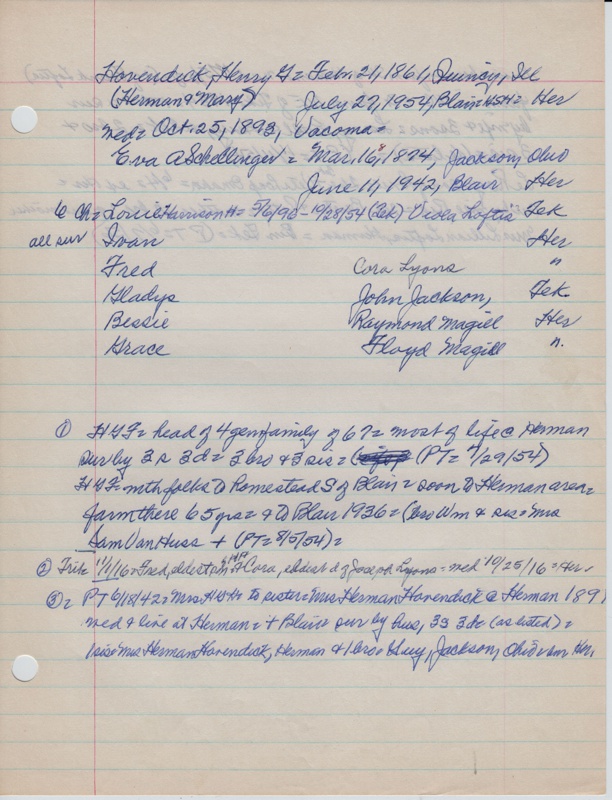 Hovendick, Henry G = Feb. 21, 1861, Quincy, Ill
(Herman & Mary) July 27, 1954, Blair = HSH = Her
med = Oct. 25, 1893, Tacoma =
Eva A Schellinger = Mar. 16, 1874, Jackson, Ohio
June 11, 1942, Blair Her
6 Ch = Louie Harrison H = 5/6/90 - 10/28/54 (Tek) Viola Loftis Tek
all sur Ivan Her
Fred Cora Lyons "
Gladys John Jackson, Tek.
Bessie Raymond Magill Her
Grace Floyd Magill ".
① = head of 4 gen family of 67 = most of life @ Herman
sur by 3 s 3 d = 3 bro & 3 sis = (PT = 7/29/54)
with folks to homestead S of Blair = soon to Herman area =
farm there 65 yrs = & to Blair 1936 = (bro Wm & sis = Mrs
Sam Van Huss + (PT = 8/5/54) =
② Trib 11/1/16 = Fred, eldest & Cora, eldest d of Joseph Lyons = med 10/25/16 = Her.
③ = PT 6/18/42 = Mrs HGH = to sister = Mrs Herman Hovendick @ Herman 189
med & live at Herman = + Blair = sur by hus, 3 s 3 d (as listed) =
1 sis = Mrs Herman Hovendick, Herman & 1 bro = Guy, Jackson, Ohio = bur Her.